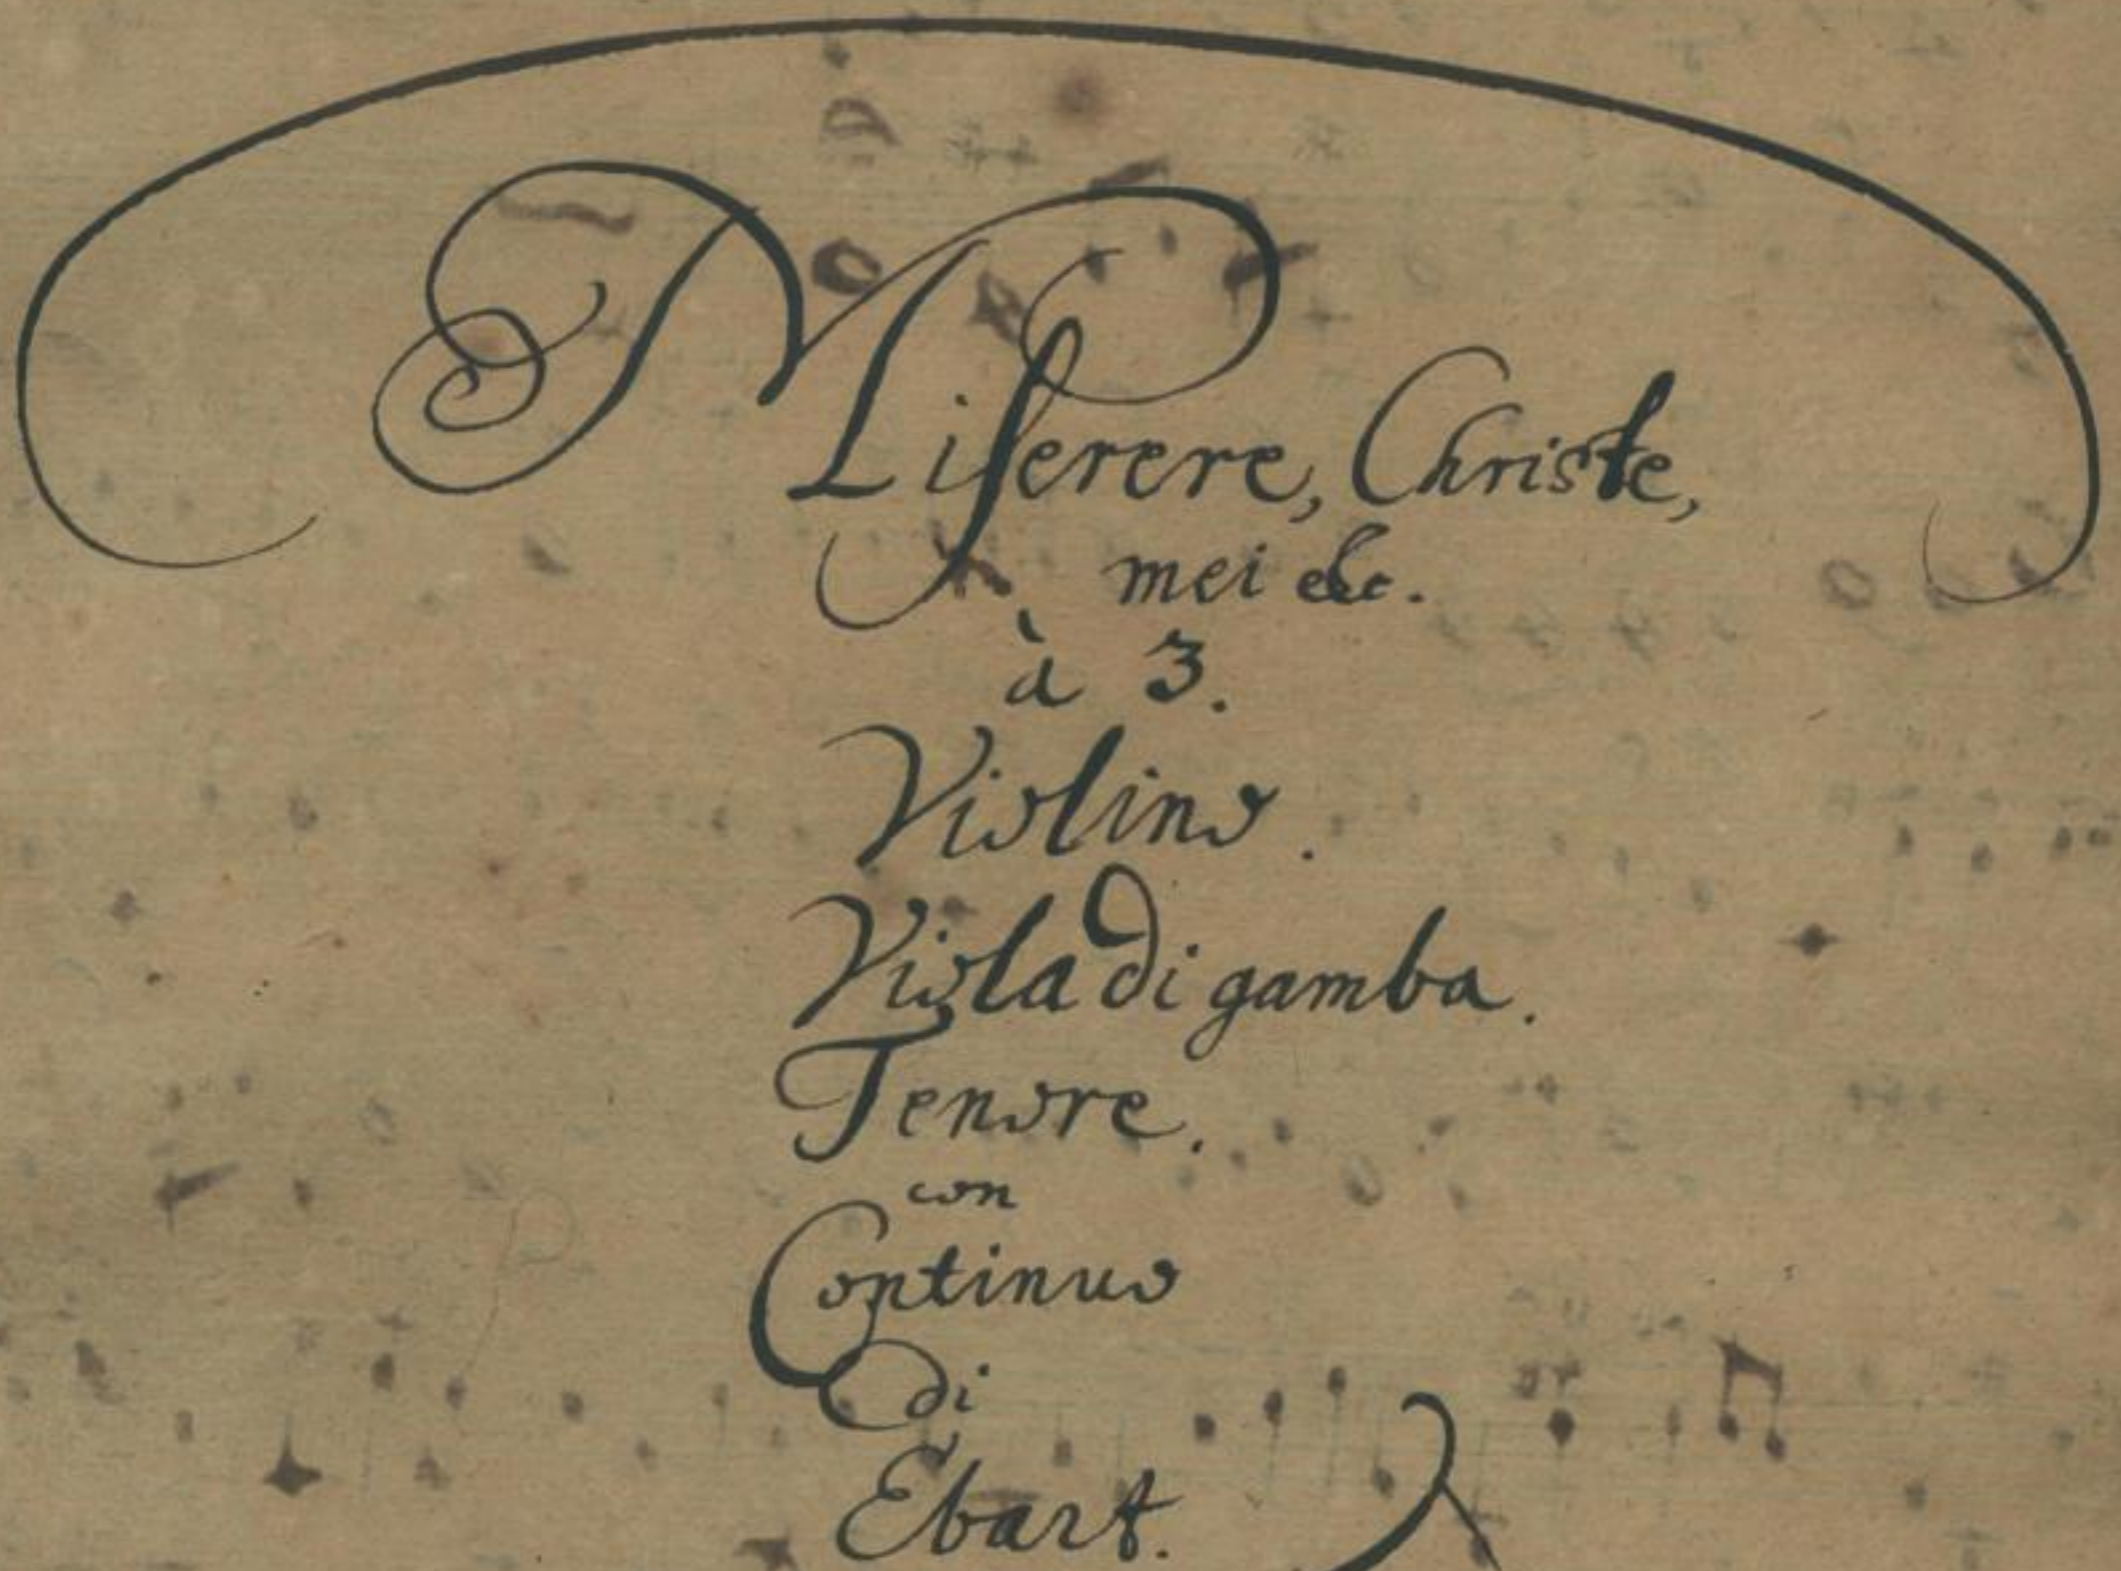 Miserere, Christe,
mei etc.
à 3.
Violino.
Viola di gamba.
Tenore.
con
Continuo
di
Ebart.